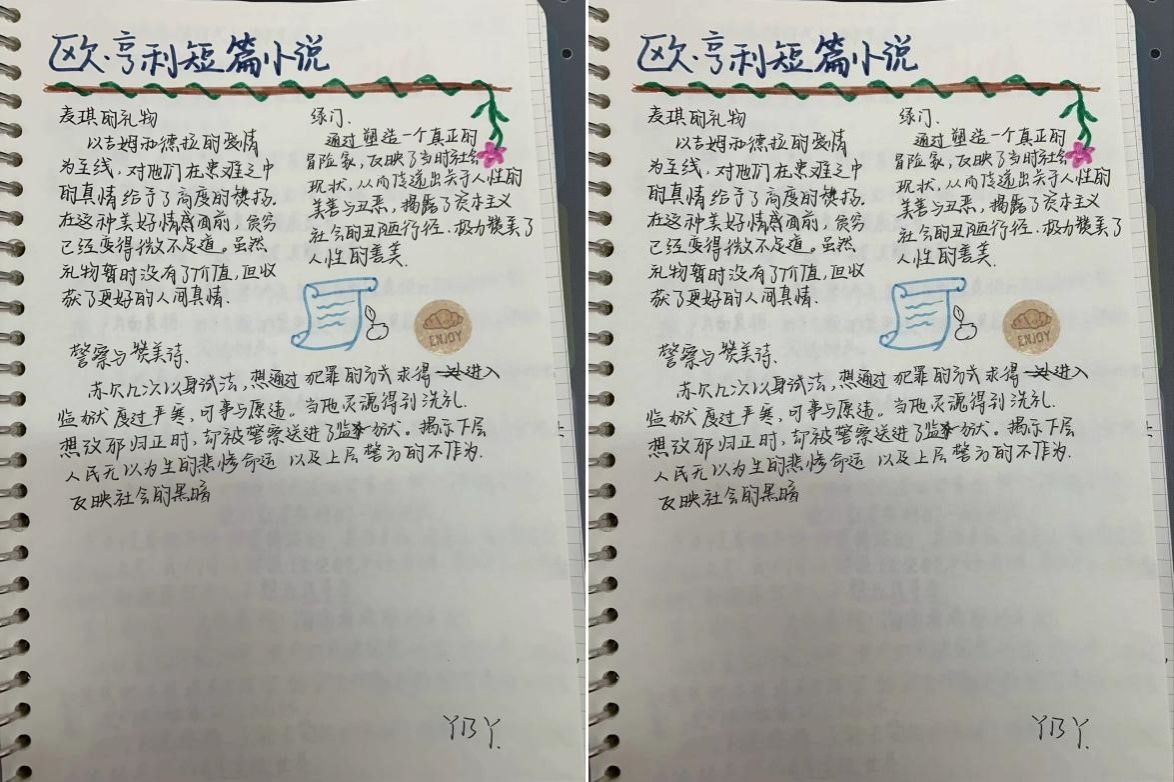 欧·亨利短篇小说
麦琪的礼物
以吉姆和德拉的爱情
为主线,对他们在患难之中
的真情给予了高度的赞扬。
在这种美好情感面前,贫穷
已经变得微不足道。虽然
礼物暂时没有了价值,但收
获了更好的人间真情.
绿门.
通过塑造一个真正的
冒险家,反映了当时社会
现状,从而传递出关于人性的
美善与丑恶,揭露了资本主义
社会的丑陋行径.极力赞美了
人性的善美.
ENJOY
警察与赞美诗.
苏比几次以身试法,想通过犯罪的方式求得进入
监狱度过严寒,可事与愿违。当他灵魂得到洗礼.
想改邪归正时,却被警察送进了监狱。揭示下层
人民无以为生的悲惨命运 以及上层警方的不作为.
反映社会的黑暗
YBY.
欧·亨利短篇小说
麦琪的礼物
以吉姆和德拉的爱情
为主线,对他们在患难之中
的真情给予了高度的赞扬。
在这种美好情感面前,贫穷
已经变得微不足道。虽然
礼物暂时没有了价值,但收
获了更好的人间真情.
绿门.
通过塑造一个真正的
冒险家,反映了当时社会
现状,从而传递出关于人性的
美善与丑恶,揭露了资本主义
社会的丑陋行径.极力赞美了
人性的善美.
ENJOY
警察与赞美诗.
苏比几次以身试法,想通过犯罪的方式求得进入
监狱度过严寒,可事与愿违。当他灵魂得到洗礼.
想改邪归正时,却被警察送进了监狱。揭示下层
人民无以为生的悲惨命运 以及上层警方的不作为.
反映社会的黑暗
YBY.